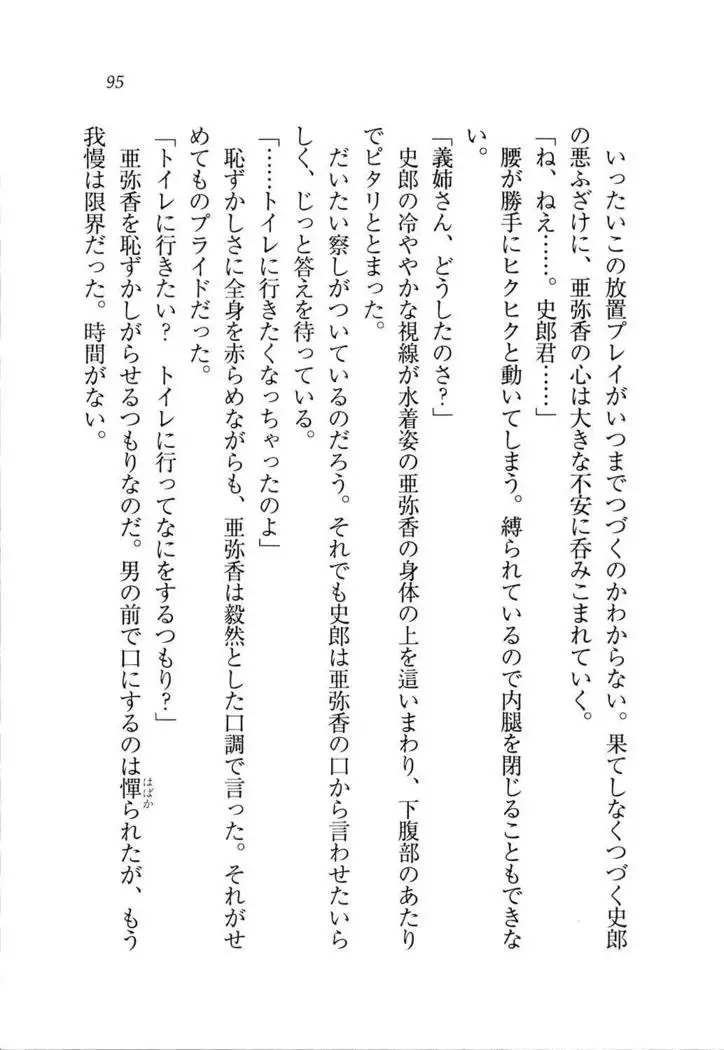 95
いったいこの放置プレイがいつまでつづくのかわからない。果てしなくつづく史郎
の悪ふざけに、亜弥香の心は大きな不安に呑みこまれていく。
「ね、ねえ……。史郎君……」
腰が勝手にヒクヒクと動いてしまう。縛られているので内腿を閉じることもできな
い。
「義姉さん、どうしたのさ？」
史郎の冷ややかな視線が水着姿の亜弥香の身体の上を這いまわり、下腹部のあたり
でピタリととまった。
だいたい察しがついているのだろう。それでも史郎は亜弥香の口から言わせたいら
しく、じっと答えを待っている。
「……トイレに行きたくなっちゃったのよ」
恥ずかしさに全身を赤らめながらも、亜弥香は毅然とした口調で言った。それがせ
めてものプライドだった。
「トイレに行きたい？　トイレに行ってなにをするつもり？」
亜弥香を恥ずかしがらせるつもりなのだ。男の前で口にするのは憚られたが、もう
はばか
我慢は限界だった。時間がない。